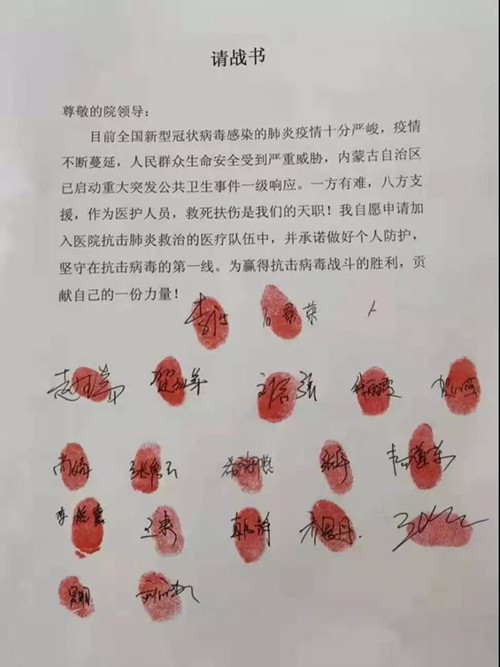 请战书
尊敬的院领导:
目前全国新型冠状病毒感染的肺炎疫情十分严峻，疫情
不断蔓延，人民群众生命安全受到严重威胁，内蒙古自治区
已启动重大突发公共卫生事件一级响应。一方有难，八方支
援，作为医护人员，救死扶伤是我们的天职！我自愿申请加
入医院抗击肺炎救治的医疗队伍中，并承诺做好个人防护，
坚守在抗击病毒的第一线。为赢得抗击病毒战斗的胜利，贡
献自己的一份力量！